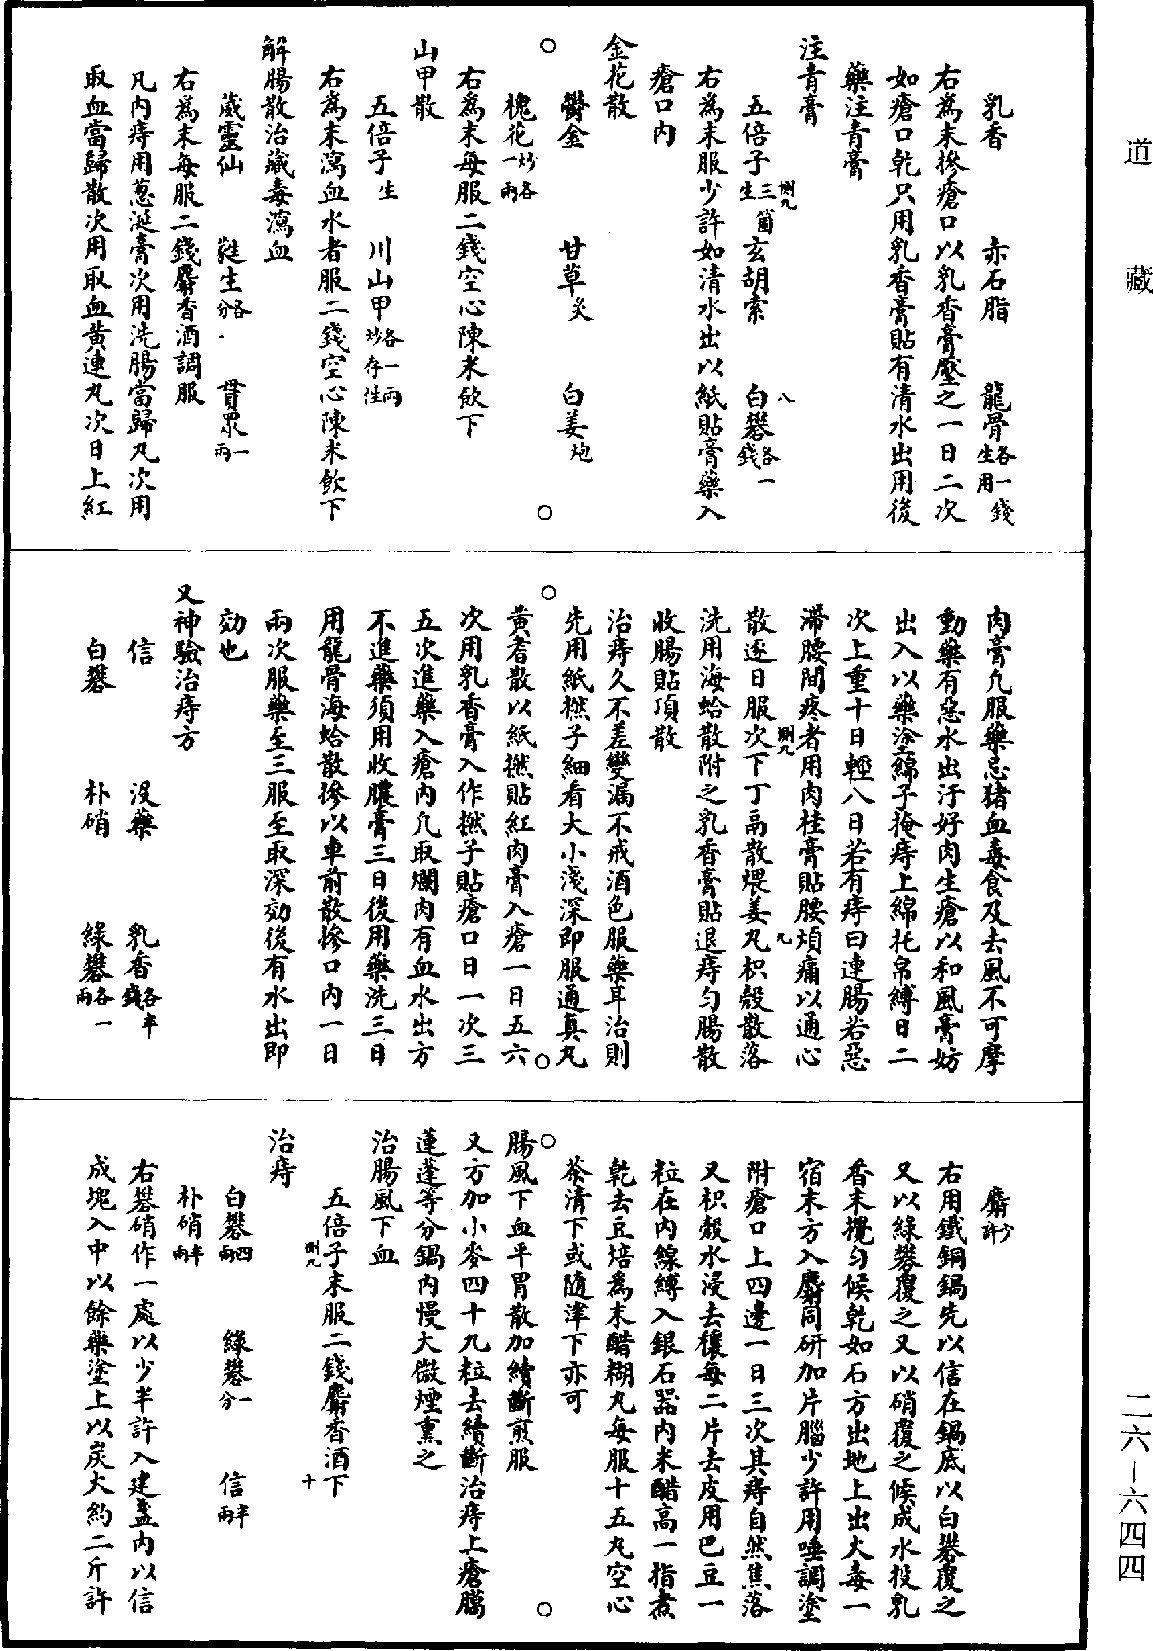 道藏
乳香　赤石脂　龍骨各一錢生用
右為末摻瘡口以乳香膏壓之一日二次
如瘡口乾只用乳香膏貼有清水出用後
藥注青膏
注青膏
五倍子三箇生　玄胡索　白礬各一錢
右為末服少許如清水出以紙貼膏藥入
瘡口内
金花散
鬱金　甘草炙　白姜炮
槐花炒各一兩
右為末每服二錢空心陳米飲下
山甲散
五倍子生　川山甲各一兩炒存性
右為末瀉血水者服二錢空心陳米飲下
解腸散治藏毒瀉血
葳靈仙　　生各分　貫眾一兩
右為末每服二錢麝香酒調服
凡内痔用蔥涎膏次用洗腸當歸丸次用
取血當歸散次用取血黃連丸次日上紅
肉膏凡服藥忌猪血毒食及去風不可摩
動藥有惡水出汙好肉生瘡以和風膏妨
出入以藥塗綿子掩痔上綿托帛縛日二
次上重十日輕八日若有痔曰連腸若惡
滯腰間疼者用肉桂膏貼腰煩痛以通心
散逐日服次下丁鬲散煨姜丸枳殼散落
洗用海蛤散附之乳香膏貼退痔勻腸散
收腸貼頂散
治痔久不差變漏不戒酒色服藥耳治則
先用紙撚子細看大小淺深即服通真丸
黃耆散以紙撚貼紅肉膏入瘡一日五六
次用乳香膏入作撚子貼瘡口日一次三
五次進藥入瘡内凡取爛肉有血水出方
不進藥須用收膿膏三日後用藥洗三日
用龍骨海蛤散摻以車前散摻口内一日
兩次服藥至三服至取深効後有水出即
効也
又神驗治痔方
信　沒藥　乳香各半錢
白礬　朴硝　綠礬各一兩
麝少許
右用鐵銅鍋先以信在鍋底以白礬覆之
又以綠礬覆之又以硝覆之候成水投乳
香末攪勻候乾如石方出地上出火毒一
宿末方入麝同研加片腦少許用唾調塗
附瘡口上四邊一日三次其痔自然焦落
又枳殼水浸去穰每二片去皮用巴豆一
粒在内線縛入銀石器内米醋高一指煮
乾去豆焙為末醋糊丸每服十五丸空心
茶清下或隨津下亦可
腸風下血平胃散加續斷煎服
又方加小麥四十九粒去續斷治痔上瘡腸
蓮蓬等分鍋内慢火微煙熏之
治腸風下血
五倍子末服二錢麝香酒下
治痔
白礬四兩　綠礬一分　信半兩
朴硝半兩
右礬硝作一處以少半許入建盞内以信
成塊入中以餘藥塗上以炭火約二斤許
二六—六四四